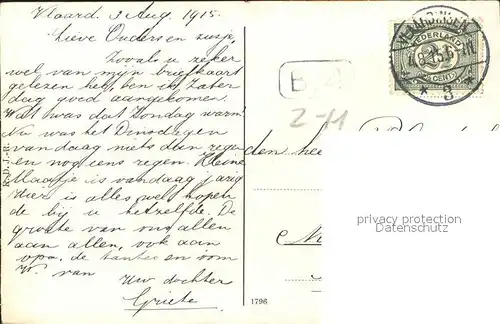 Vlaard. 3 Aug. 1915.
Lieve Ouders en zusje
Zooals u zeker
wel van mijn briefkaart
gelezen heb, ben ik Zater
dag goed aangekomen.
Wat was dat Zondag warm!
Nu was het Dinsdagen
vandaag niets dan regen
en nog eens regen. Kleine
Maatje is vandaag jarig
Hier is alles wel hopen
de bij u hetzelfde. De
groete van ons allen
aan allen, ook aan
opa, de tantes en oom
W. van
Uw dochter
Griete
R.D.J.-R.
den hee
B
2-11
VLAARDINGEN
NEDERLAND
2½
CENT
3
privacy protection
DatenSchutz
1796